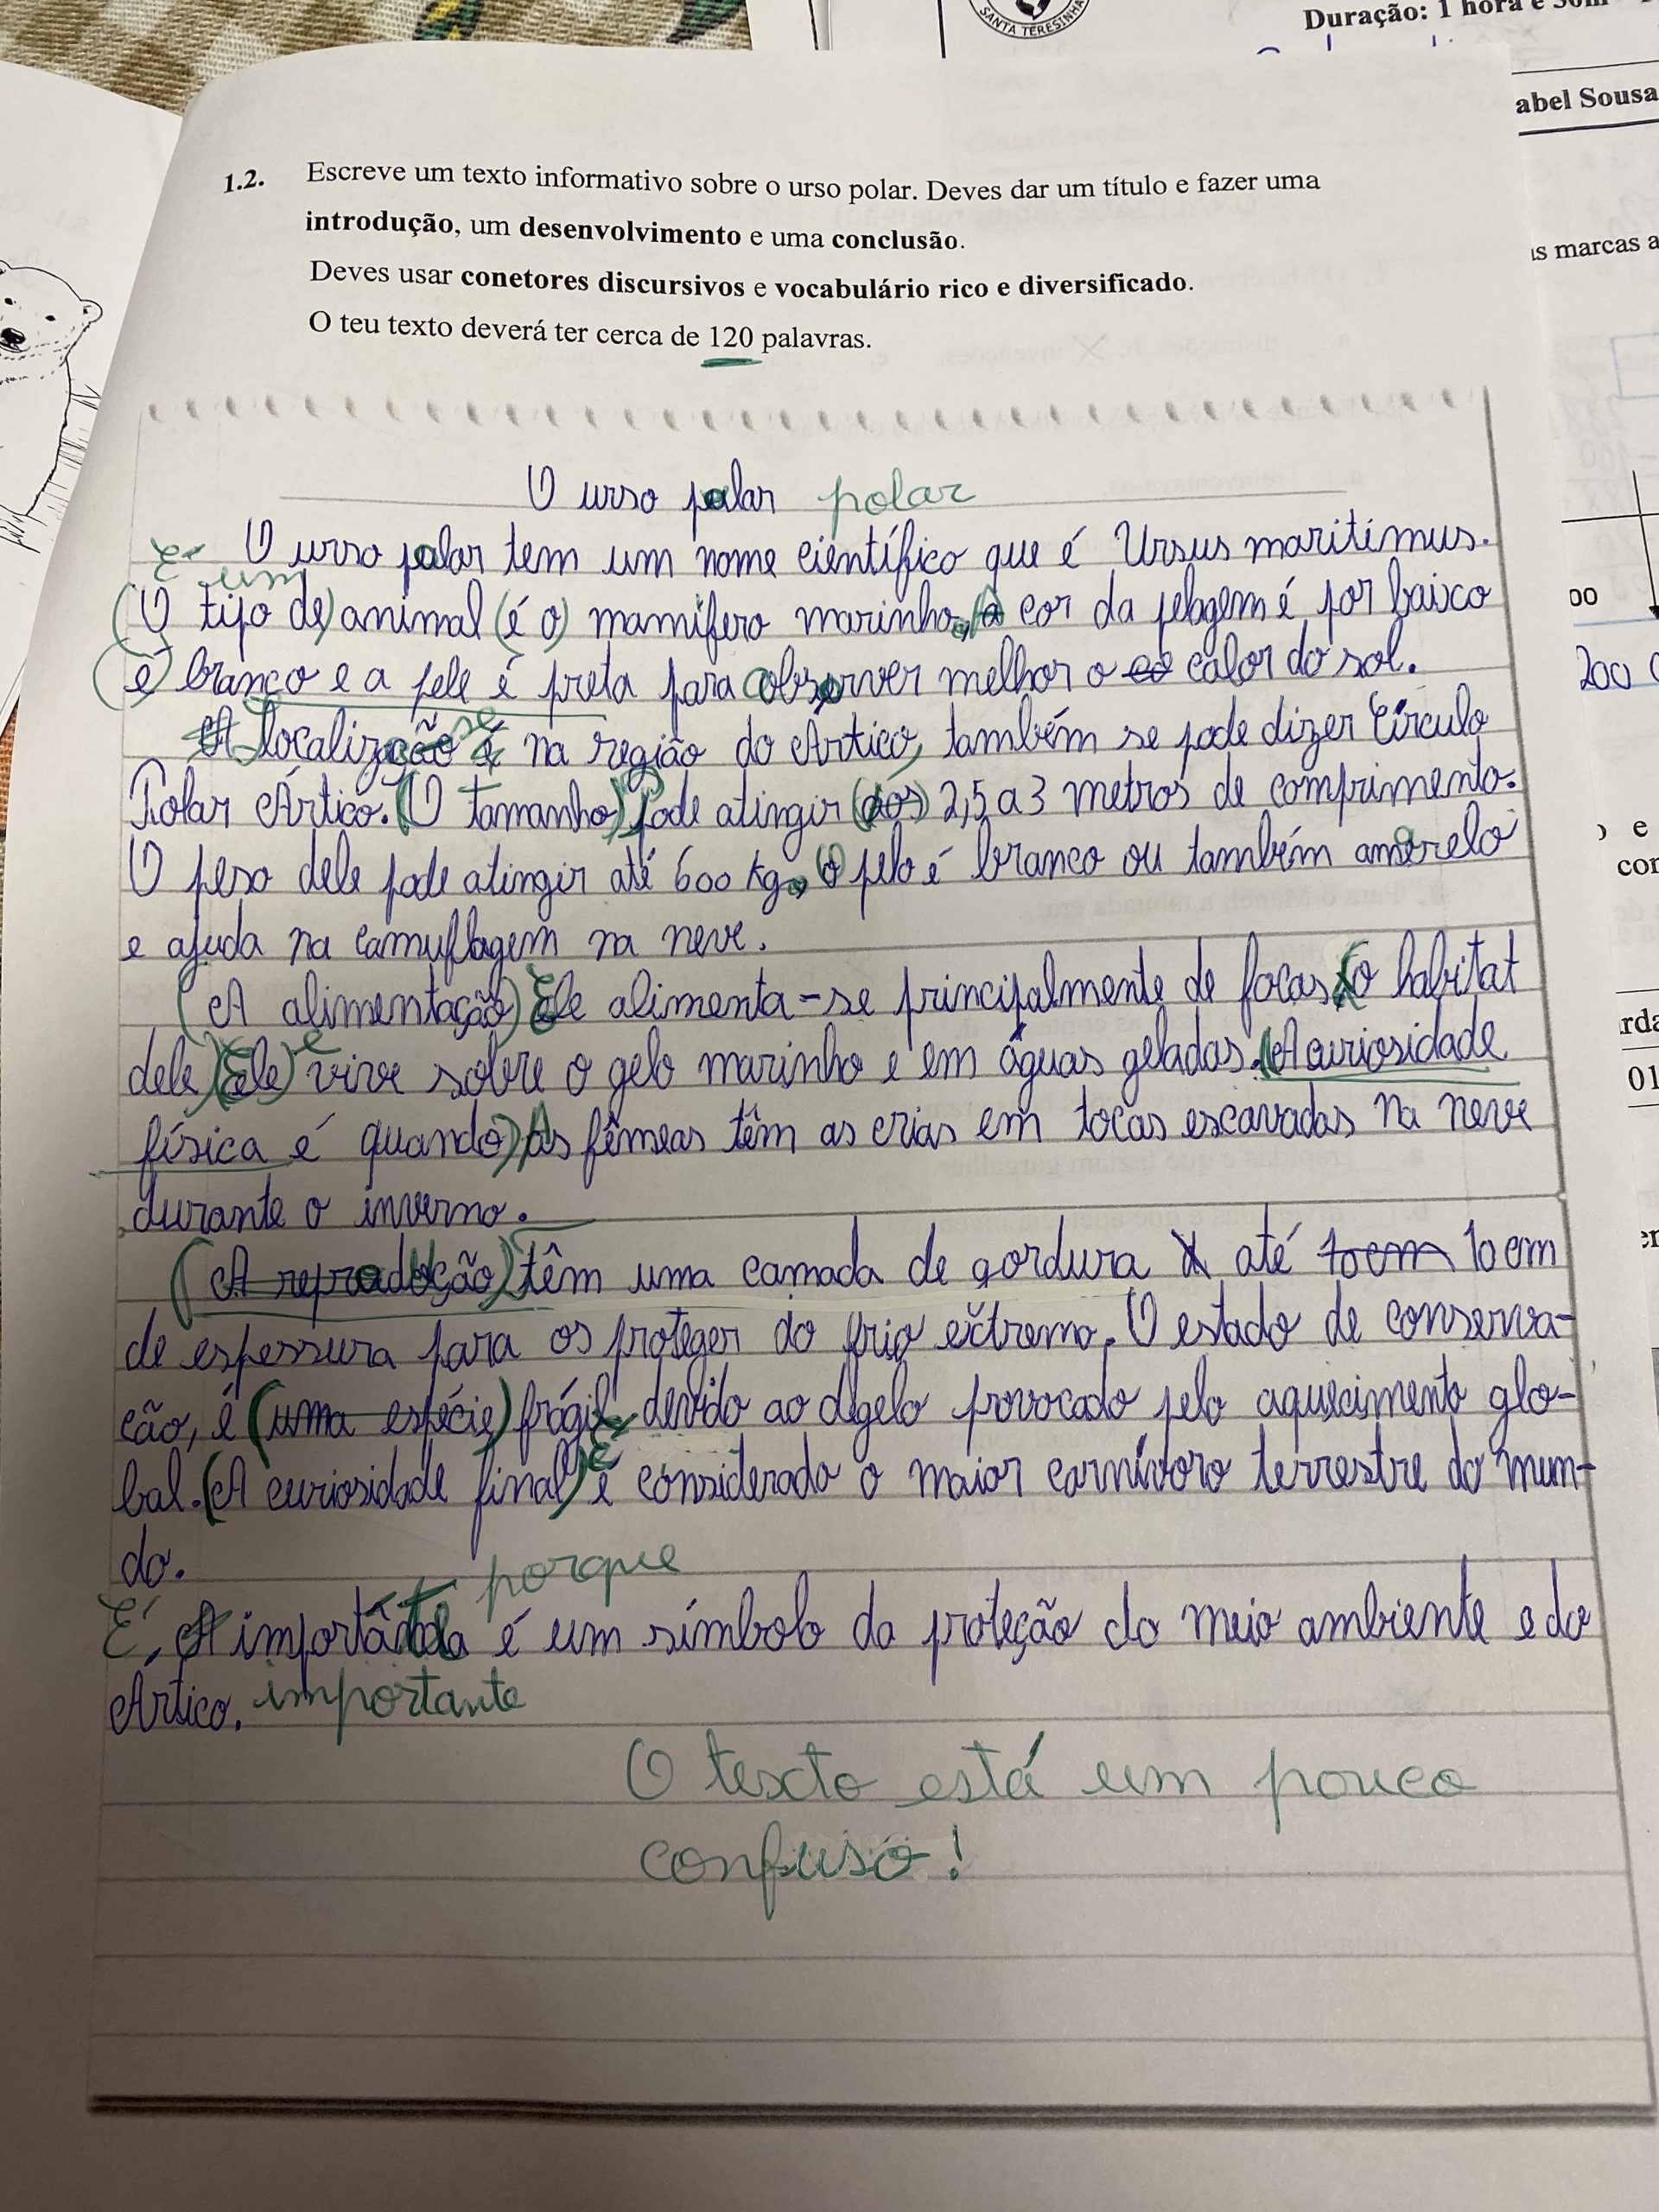 SANTA TERESINHA
Duração: 1 hora e 30m
abel Sousa
1.2. Escreve um texto informativo sobre o urso polar. Deves dar um título e fazer uma
introdução, um desenvolvimento e uma conclusão.
Deves usar conetores discursivos e vocabulário rico e diversificado.
O teu texto deverá ter cerca de 120 palavras.
is marcas a
O urso polar polar
O urso polar tem um nome científico que é Ursus maritimus.
É um
(O tipo de) animal (é o) mamífero marinho, a cor da pelagem é por baixo
(é) branco e a pele é preta para observer melhor o calor do sol.
A localização é na região do Ártico, também se pode dizer Círculo
se
Polar Ártico. (O tamanho) Pode atingir (aos) 2,5 a 3 metros de comprimento.
O peso dele pode atingir até 600 kg, O pelo é branco ou também amarelo
e ajuda na camuflagem na neve.
(A alimentação) Ele alimenta-se principalmente de focas o habitat
dele) (Ele) e vive sobre o gelo marinho e em águas geladas. (A curiosidade
física é quando) As fêmeas têm as crias em tocas escavadas na neve
durante o inverno.
(A reprodução) têm uma camada de gordura até 10cm 10 cm
de espessura para os proteger do frio extremo. O estado de conserva-
ção, é (uma espécie) frágil devido ao degelo provocado pelo aquecimento glo-
bal. (A curiosidade final) É é considerado o maior carnívoro terrestre do mun-
do.
porque
É A importância é um símbolo da proteção do meio ambiente e do
Ártico. importante
O texto está um pouco
confuso!
00
200
e
cor
01